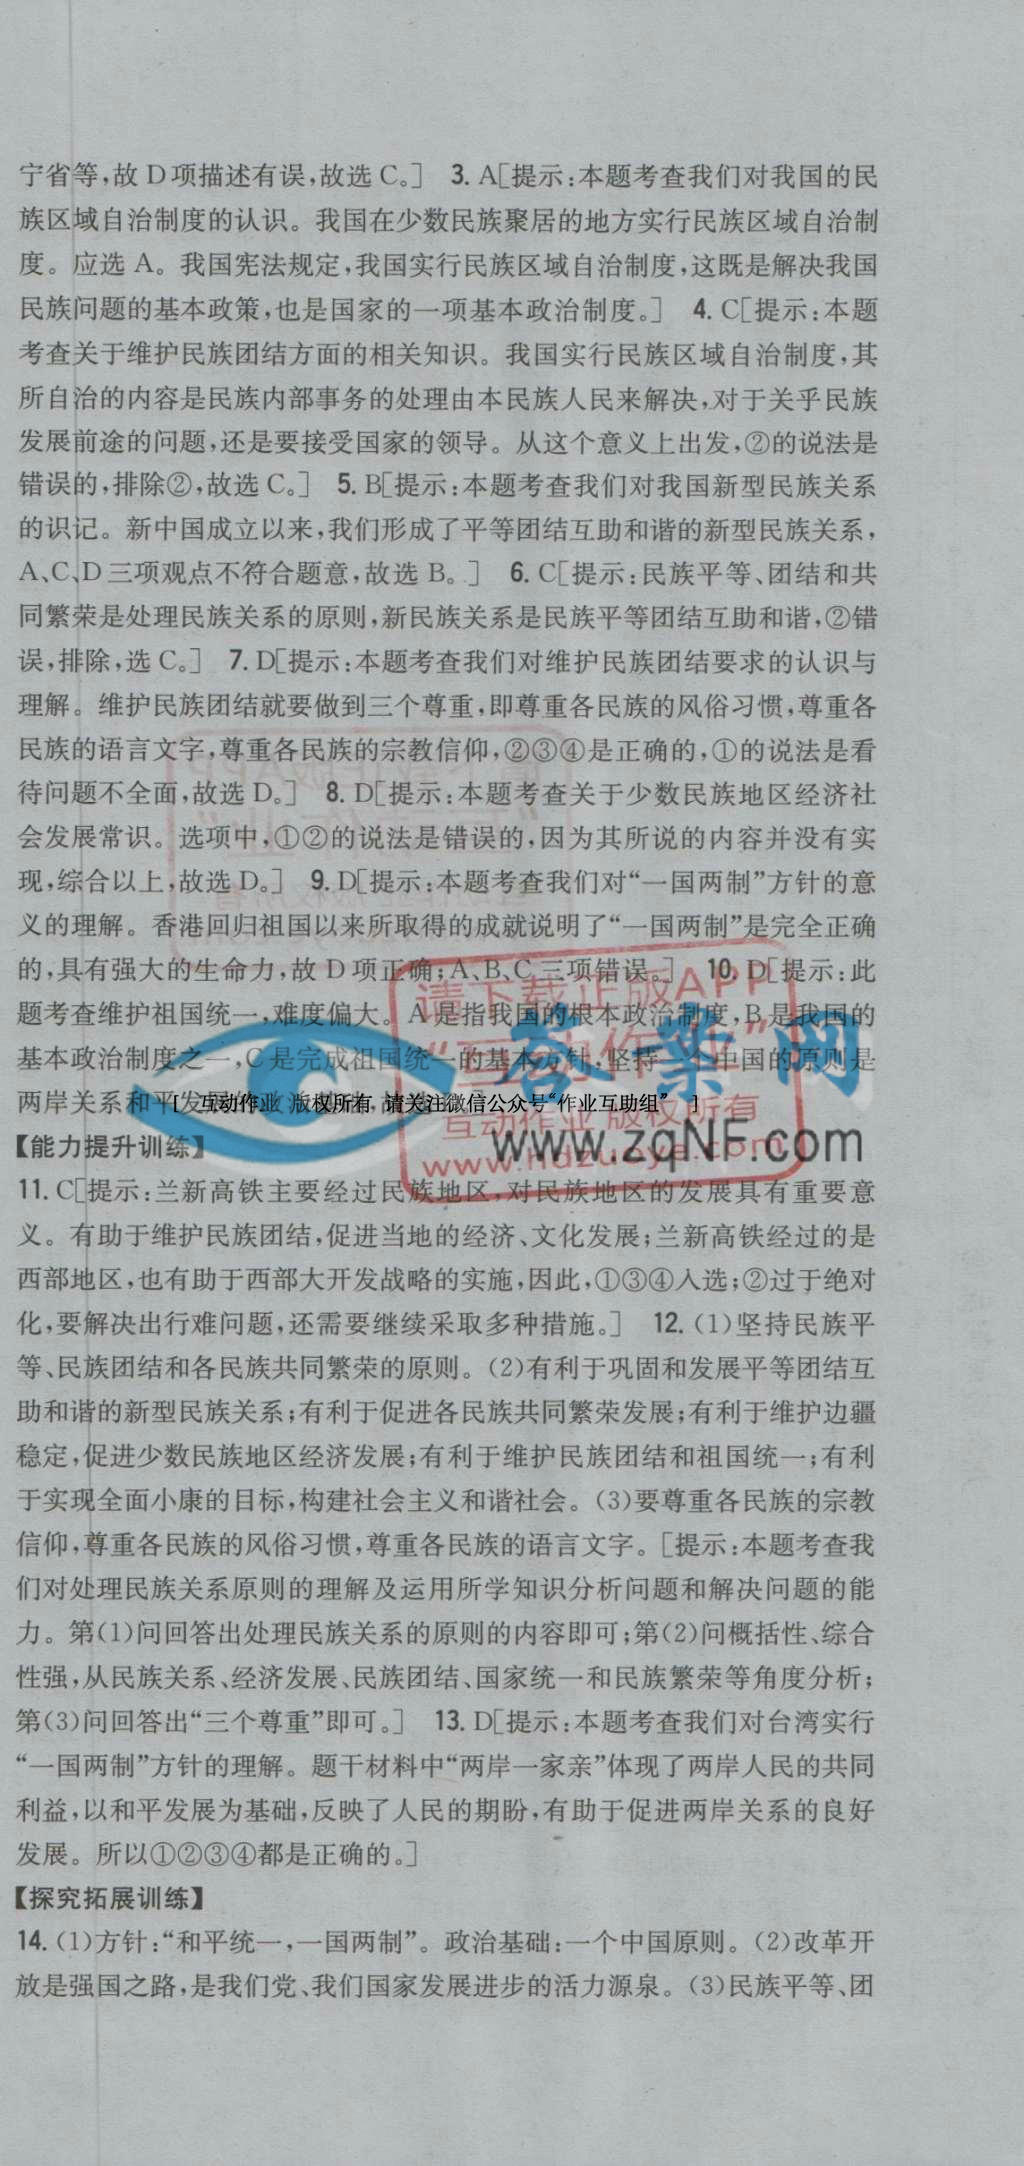 宁省等,故 D 项描述有误,故选 C。] 3. A[提示:本题考查我们对我国的民
族区域自治制度的认识。我国在少数民族聚居的地方实行民族区域自治制
度。应选 A。我国宪法规定,我国实行民族区域自治制度,这既是解决我国
民族问题的基本政策,也是国家的一项基本政治制度。] 4. C[提示:本题
考查关于维护民族团结方面的相关知识。我国实行民族区域自治制度,其
所自治的内容是民族内部事务的处理由本民族人民来解决,对于关乎民族
发展前途的问题,还是要接受国家的领导。从这个意义上出发,②的说法是
错误的,排除②,故选 C。] 5. B[提示:本题考查我们对我国新型民族关系
的识记。新中国成立以来,我们形成了平等团结互助和谐的新型民族关系,
A、C、D 三项观点不符合题意,故选 B。] 6. C[提示:民族平等、团结和共
同繁荣是处理民族关系的原则,新民族关系是民族平等团结互助和谐,②错
误,排除,选 C。] 7. D[提示:本题考查我们对维护民族团结要求的认识与
理解。维护民族团结就要做到三个尊重,即尊重各民族的风俗习惯,尊重各
民族的语言文字,尊重各民族的宗教信仰,②③④是正确的,①的说法是看
待问题不全面,故选 D。] 8. D[提示:本题考查关于少数民族地区经济社
会发展常识。选项中,①②的说法是错误的,因为其所说的内容并没有实
现,综合以上,故选 D。] 9. D[提示:本题考查我们对“一国两制”方针的意
义的理解。香港回归祖国以来所取得的成就说明了“一国两制”是完全正确
的,具有强大的生命力,故 D 项正确;A、B、C 三项错误。] 10. D[提示:此
题考查维护祖国统一,难度偏大。A 是指我国的根本政治制度,B 是我国的
基本政治制度之一,C 是完成祖国统一的基本方针,坚持一个中国的原则是
两岸关系和平发展的
[ 互动作业 版权所有 请关注微信公众号“作业互助组” ]
请下载正版APP
“互动作业”
互动作业 版权所有
www.hdzuoye.com
答案网
www.zqNF.com
【能力提升训练】
11. C[提示:兰新高铁主要经过民族地区,对民族地区的发展具有重要意
义。有助于维护民族团结,促进当地的经济、文化发展;兰新高铁经过的是
西部地区,也有助于西部大开发战略的实施,因此,①③④入选;②过于绝对
化,要解决出行难问题,还需要继续采取多种措施。] 12. (1)坚持民族平
等、民族团结和各民族共同繁荣的原则。(2)有利于巩固和发展平等团结互
助和谐的新型民族关系;有利于促进各民族共同繁荣发展;有利于维护边疆
稳定,促进少数民族地区经济发展;有利于维护民族团结和祖国统一;有利
于实现全面小康的目标,构建社会主义和谐社会。(3)要尊重各民族的宗教
信仰,尊重各民族的风俗习惯,尊重各民族的语言文字。[提示:本题考查我
们对处理民族关系原则的理解及运用所学知识分析问题和解决问题的能
力。第(1)问回答出处理民族关系的原则的内容即可;第(2)问概括性、综合
性强,从民族关系、经济发展、民族团结、国家统一和民族繁荣等角度分析;
第(3)问回答出“三个尊重”即可。] 13. D[提示:本题考查我们对台湾实行
“一国两制”方针的理解。题干材料中“两岸一家亲”体现了两岸人民的共同
利益,以和平发展为基础,反映了人民的期盼,有助于促进两岸关系的良好
发展。所以①②③④都是正确的。]
【探究拓展训练】
14. (1)方针:“和平统一,一国两制”。政治基础:一个中国原则。(2)改革开
放是强国之路,是我们党、我们国家发展进步的活力源泉。(3)民族平等、团